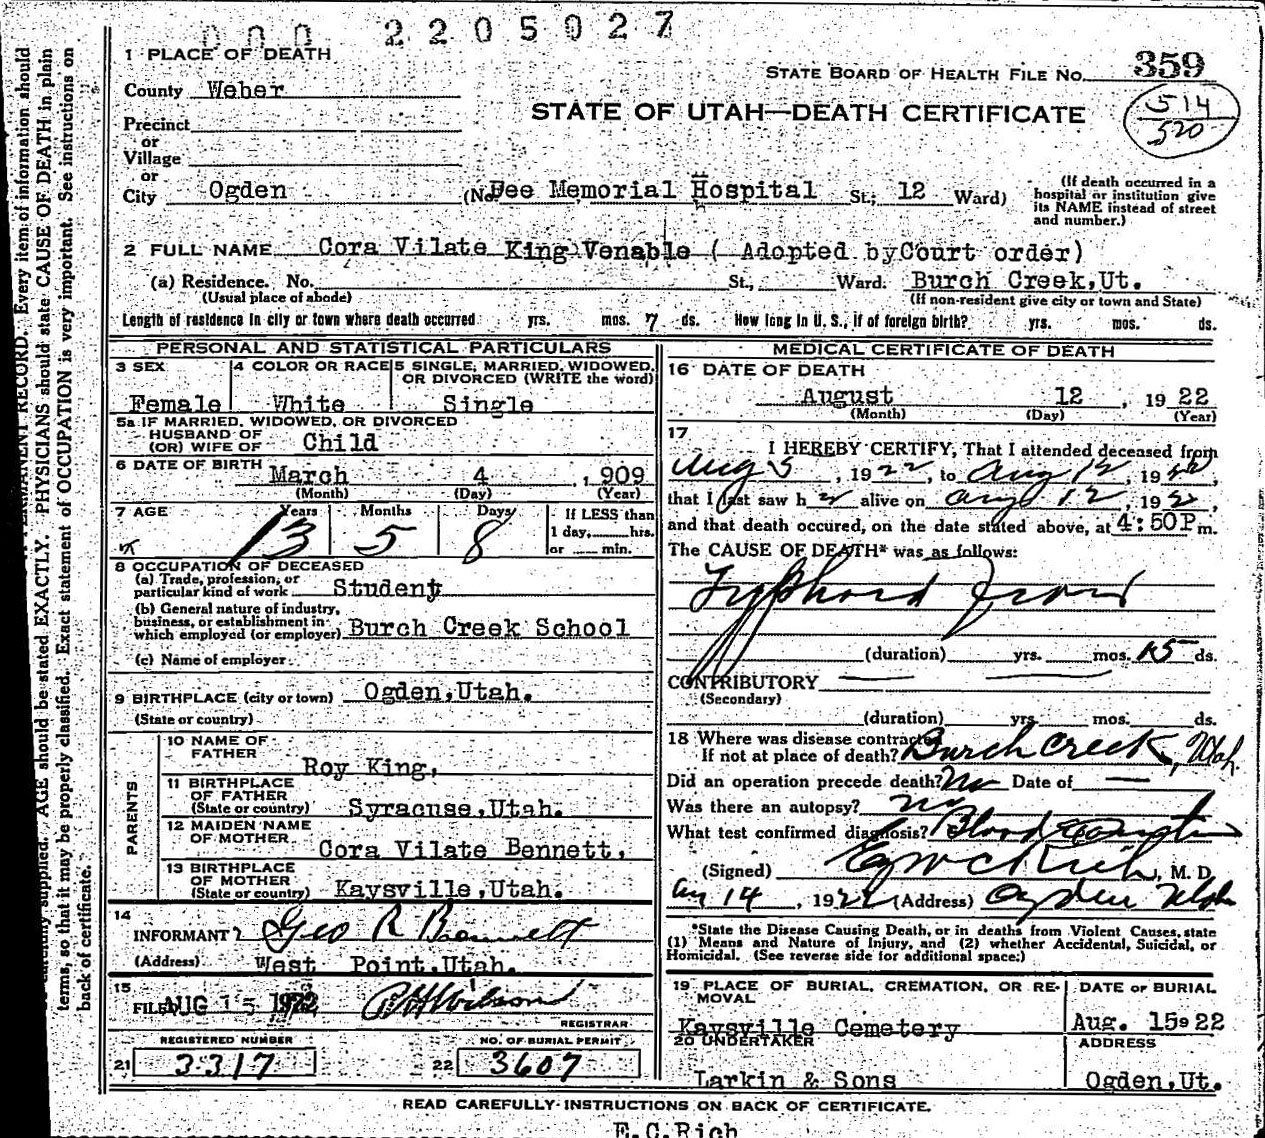 000 2205027
1 PLACE OF DEATH
STATE BOARD OF HEALTH FILE NO. 359
County Weber
STATE OF UTAH—DEATH CERTIFICATE
514
520
Precinct
or
Village
or
City Ogden (No. Dee Memorial Hospital St.; 12 Ward)
(If death occurred in a
hospital or institution give
its NAME instead of street
and number.)
2 FULL NAME Cora Vilate King Venable ( Adopted by Court order)
(a) Residence. No. St., Ward. Burch Creek,Ut.
(Usual place of abode) (If non-resident give city or town and State)
Length of residence in city or town where death occurred yrs. mos. 7 ds. How long in U. S., if of foreign birth? yrs. mos. ds.
PERSONAL AND STATISTICAL PARTICULARS
3 SEX 4 COLOR OR RACE 5 SINGLE, MARRIED, WIDOWED,
OR DIVORCED (WRITE the word)
Female White Single
5a IF MARRIED, WIDOWED, OR DIVORCED
HUSBAND OF
(OR) WIFE OF Child
6 DATE OF BIRTH March 4 , 909
(Month) (Day) (Year)
7 AGE Years Months Days If LESS than
1 day, hrs.
or min.
13 5 8
8 OCCUPATION OF DECEASED
(a) Trade, profession, or
particular kind of work Student
(b) General nature of industry,
business, or establishment in
which employed (or employer) Burch Creek School
(c) Name of employer
9 BIRTHPLACE (city or town) Ogden,Utah.
(State or country)
PARENTS
10 NAME OF
FATHER Roy King,
11 BIRTHPLACE
OF FATHER
(State or country) Syracuse,Utah.
12 MAIDEN NAME
OF MOTHER Cora Vilate Bennett,
13 BIRTHPLACE
OF MOTHER
(State or country) Kaysville,Utah.
14
INFORMANT Geo R Bennett
(Address) West Point,Utah.
15
FILED AUG 15 1922
REGISTRAR
REGISTERED NUMBER NO. OF BURIAL PERMIT
21 3317 22 3607
MEDICAL CERTIFICATE OF DEATH
16 DATE OF DEATH
August 12 , 19 22
(Month) (Day) (Year)
17
I HEREBY CERTIFY, That I attended deceased from
Aug 5 , 1922, to Aug 12, 1922,
that I last saw her alive on Aug 12, 1922,
and that death occured, on the date stated above, at 4:50P m.
The CAUSE OF DEATH* was as follows:
Typhoid Fever
(duration) yrs. mos. 15 ds.
CONTRIBUTORY
(Secondary)
(duration) yrs. mos. ds.
18 Where was disease contracted
If not at place of death? Burch Creek, Utah
Did an operation precede death? No Date of —
Was there an autopsy? no
What test confirmed diagnosis? Blood
(Signed) Rich, M. D.
Aug 14, 1922 (Address) Ogden Utah
*State the Disease Causing Death, or in deaths from Violent Causes, state
(1) Means and Nature of Injury, and (2) whether Accidental, Suicidal, or
Homicidal. (See reverse side for additional space.)
19 PLACE OF BURIAL, CREMATION, OR RE-
MOVAL DATE OF BURIAL
Kaysville Cemetery Aug. 15 22
20 UNDERTAKER ADDRESS
Larkin & Sons Ogden,Ut.
READ CAREFULLY INSTRUCTIONS ON BACK OF CERTIFICATE.
E.C.Rich
PERMANENT RECORD. Every item of information should
supplied. AGE should be stated EXACTLY. PHYSICIANS should state CAUSE OF DEATH in plain
terms, so that it may be properly classified. Exact statement of OCCUPATION is very important. See instructions on
back of certificate.